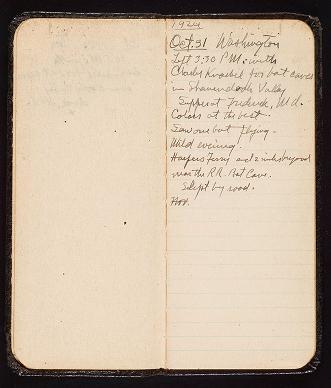 1924
Oct. 31 Washington
Left 3:30 P.M. with
Charley for bat caves
in Shanendoah Valley
Supper at Frederick, Md.
Colors at the best.
Saw one bat flying.
Mild evening.
Harpers Ferry and 2 miles beyond
near the R.R. Bat Cave.
Slept by road.
Nov.